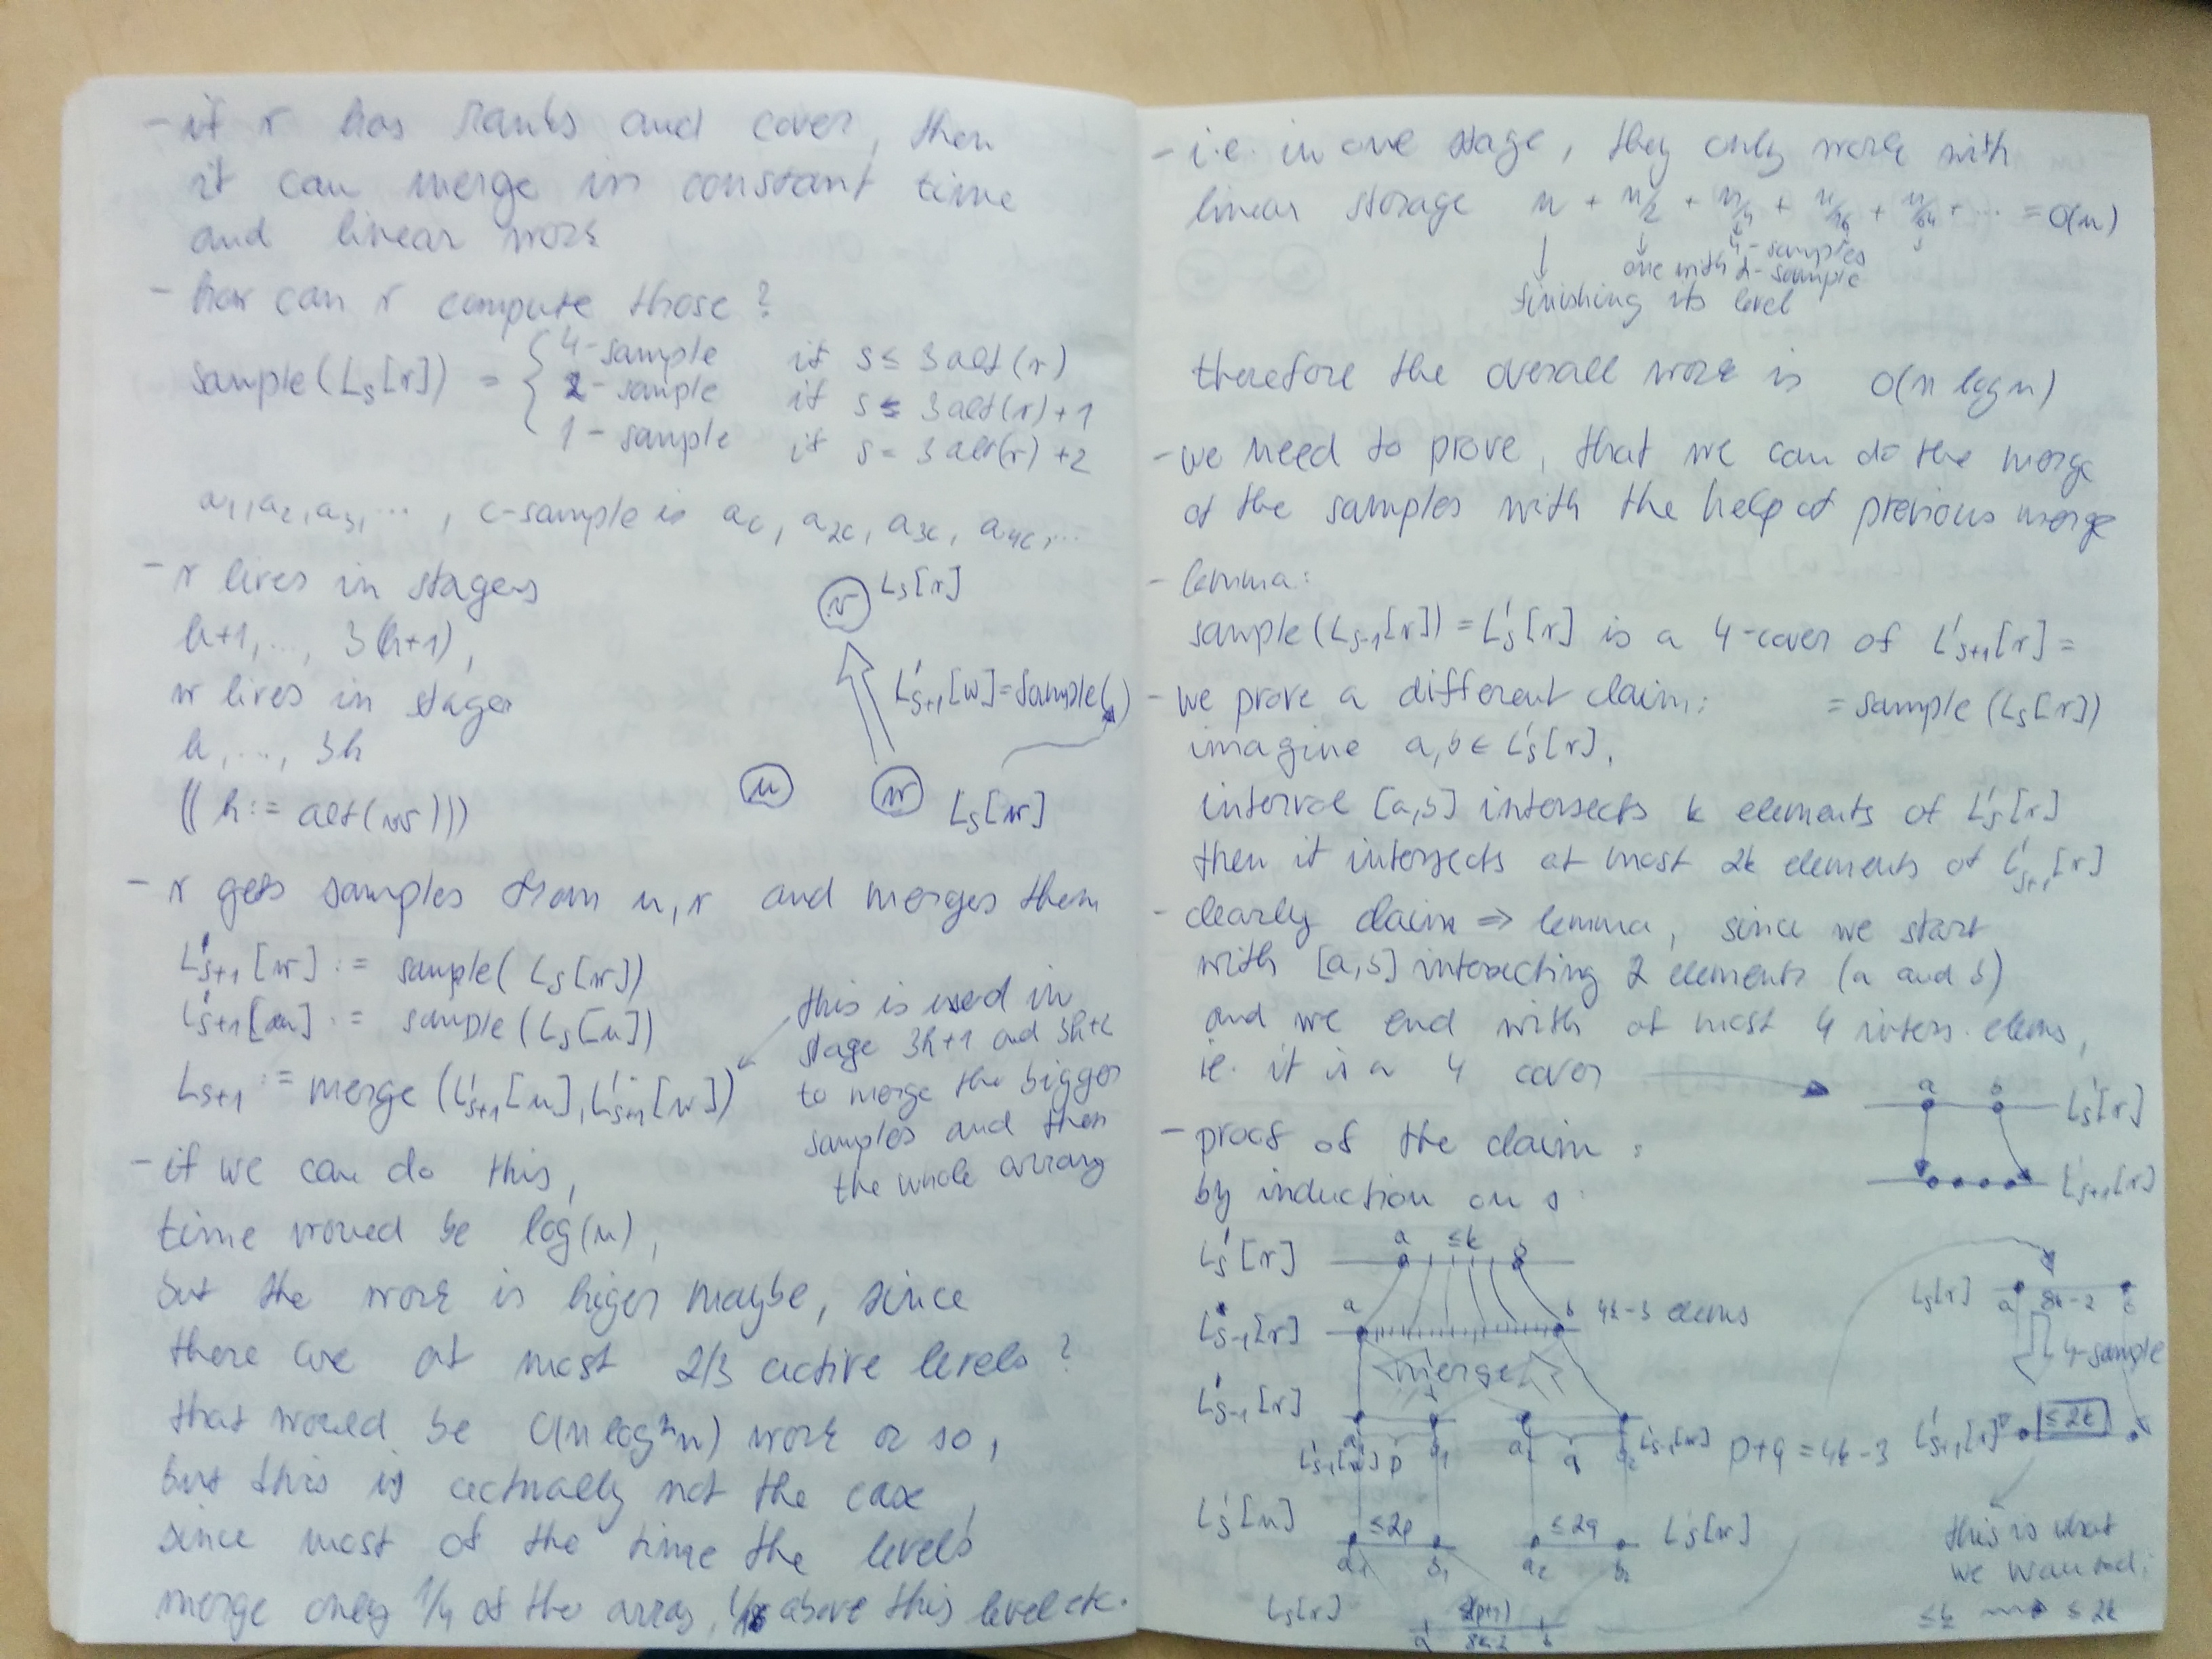 - if v has ranks and cover, then
it can merge in constant time
and linear work
- how can v compute those?
sample(Ls[v]) = { 4-sample if s ≤ 3alt(v)
2-sample if s ≤ 3alt(v)+1
1-sample if s = 3alt(v)+2
a1, a2, a3, ..., c-sample is ac, a2c, a3c, a4c, ...
- v lives in stages
h+1, ..., 3(h+1),
w lives in stages
h, ..., 3h
((h := alt(w)))
v Ls[v]
L's+1[w] = sample( )
u w Ls[w]
- v gets samples from u, v and merges them
L's+1[w] := sample(Ls[w])
L's+1[u] := sample(Ls[u])
Ls+1 := merge(L's+1[u], L's+1[w])
this is used in
stage 3h+1 and 3h+2
to merge the bigger
samples and then
the whole array
- if we can do this,
time would be log(n),
but the work is higer maybe, since
there are at most 2/3 active levels?
that would be O(n log²n) work or so,
but this is actually not the case,
since most of the time the levels
merge only 1/4 of the array, 1/16 above this level etc.
- i.e. in one stage, they only work with
linear storage n + n/2 + n/4 + n/16 + n/64 + ... = O(n)
4-samples
one with 2-sample
finishing its level
therefore the overall work is O(n log n)
- we need to prove, that we can do the merge
of the samples with the help of previous merge
- lemma:
sample(Ls-1[v]) = L's[v] is a 4-cover of L's+1[v] =
= sample(Ls[v])
- we prove a different claim:
imagine a,b ∈ L's[v],
interval [a,b] intersects k elements of L's[v]
then it intersects at most 2k elements of L's+1[v]
- clearly claim ⇒ lemma, since we start
with [a,b] intersecting 2 elements (a and b)
and we end with at most 4 inters. elems,
ie. it is a 4 cover
a b L's[v]
L's+1[v]
- proof of the claim:
by induction on s
L's[v] a ≤k b
Ls-1[v] a b 4k-3 elems
merge
L's-1[v]
p a2 q b2 p+q = 4k-3
L's[u] ≤2p ≤2q L's[w]
a1 b1 a2 b2
Ls[v] a 8k-2 b
Ls[v] a 8k-2 b
4-sample
L's+1[v] ≤2k
this is what
we wanted:
≤k ⇝ ≤2k